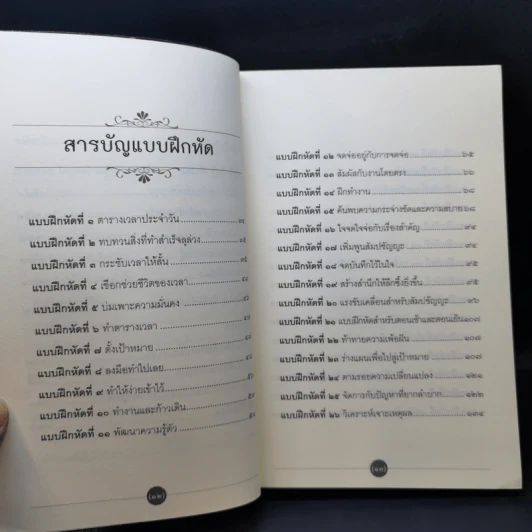 สารบัญแบบฝึกหัด
แบบฝึกหัดที่ ๑ ตารางเวลาประจำวัน
แบบฝึกหัดที่ ๒ ทบทวนสิ่งที่ทำสำเร็จลุล่วง
แบบฝึกหัดที่ ๓ กระชับเวลาให้สั้น
แบบฝึกหัดที่ ๔ เชือกช่วยชีวิตของเวลา
แบบฝึกหัดที่ ๕ บ่มเพาะความมั่นคง
แบบฝึกหัดที่ ๖ ทำตารางเวลา
แบบฝึกหัดที่ ๗ ตั้งเป้าหมาย
แบบฝึกหัดที่ ๘ ลงมือทำไปเลย
แบบฝึกหัดที่ ๙ ทำให้ง่ายเข้าไว้
แบบฝึกหัดที่ ๑๐ ทำงานและก้าวเดิน
แบบฝึกหัดที่ ๑๑ พัฒนาความรู้ตัว
(๑๒)
แบบฝึกหัดที่ ๑๒ จดจ่ออยู่กับการจดจ่อ ๖๕
แบบฝึกหัดที่ ๑๓ สัมผัสกับงานโดยตรง ๖๖
แบบฝึกหัดที่ ๑๔ ฝึกทำงาน ๖๘
แบบฝึกหัดที่ ๑๕ ค้นพบความกระจ่างชัดและความสบาย ๘๘
แบบฝึกหัดที่ ๑๖ ใจจดใจจ่อกับเรื่องสำคัญ ๙๒
แบบฝึกหัดที่ ๑๗ เพิ่มพูนสัมปชัญญะ ๙๔
แบบฝึกหัดที่ ๑๘ จดบันทึกไว้ในใจ ๙๔
แบบฝึกหัดที่ ๑๙ สร้างสำนึกให้ลึกซึ้งยิ่งขึ้น ๙๕
แบบฝึกหัดที่ ๒๐ แรงขับเคลื่อนสำหรับสัมปชัญญะ ๙๖
แบบฝึกหัดที่ ๒๑ แบบฝึกหัดสำหรับตอนเช้าและตอนเย็น
แบบฝึกหัดที่ ๒๒ ท้าทายความเพ้อฝัน ๑๐๗
แบบฝึกหัดที่ ๒๓ ร่างแผนเพื่อไปสู่เป้าหมาย ๑๐๘
แบบฝึกหัดที่ ๒๔ ตามรอยความเปลี่ยนแปลง ๑๒๑
แบบฝึกหัดที่ ๒๕ จัดการกับปัญหาที่ยากลำบาก ๑๒๒
แบบฝึกหัดที่ ๒๖ วิเคราะห์เจาะเหตุผล ๑๓๔
(๑๓)